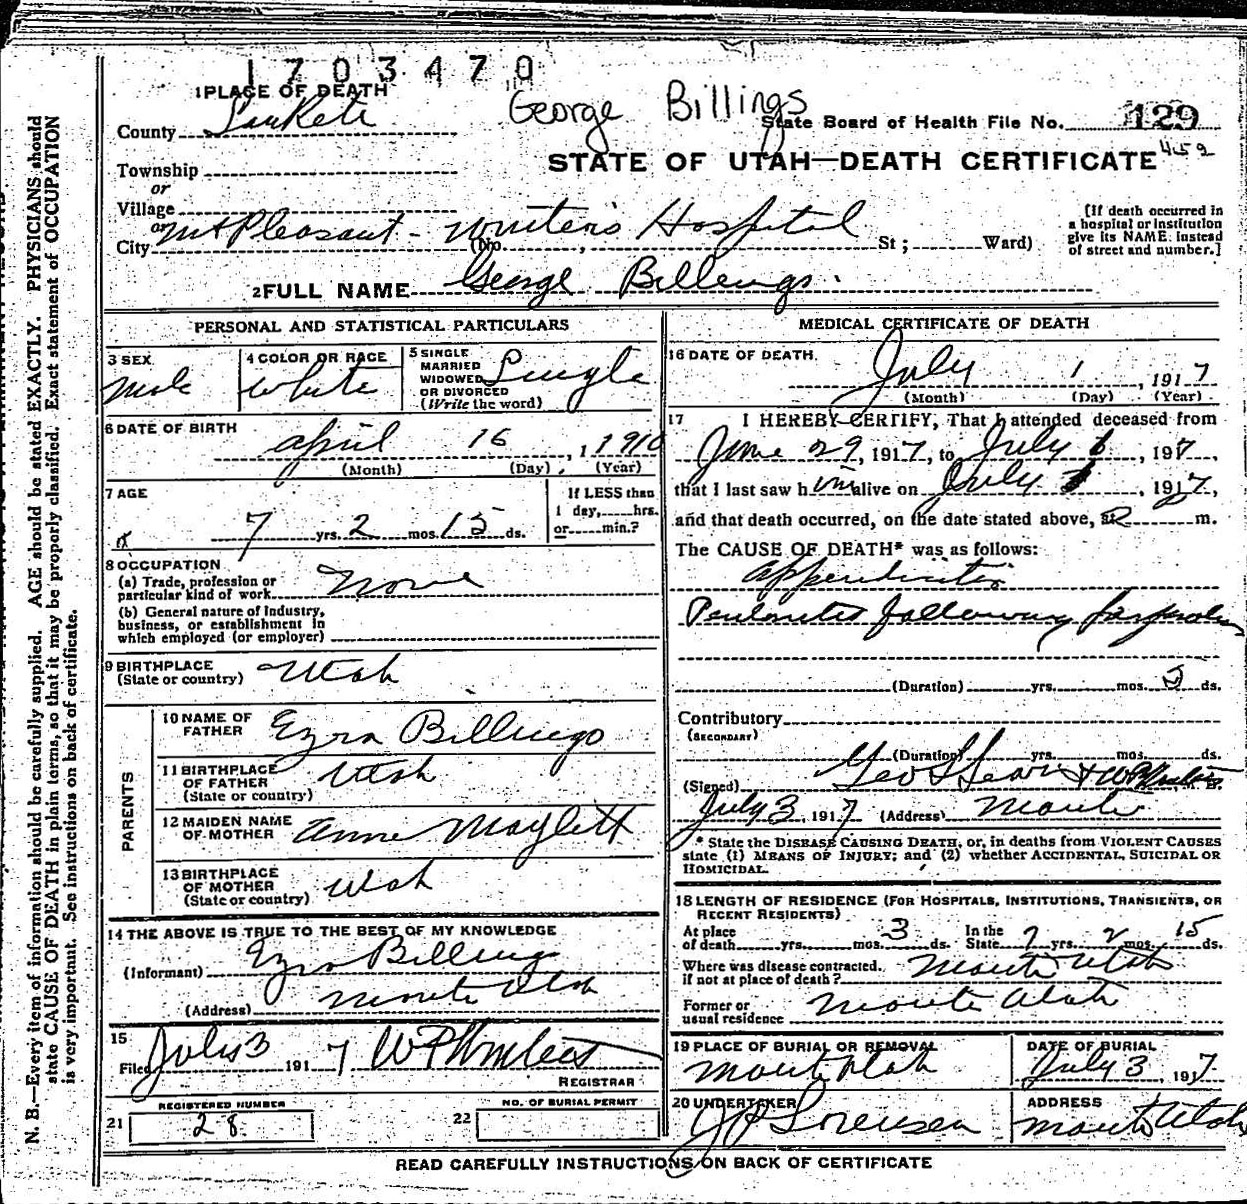 1703470
1 PLACE OF DEATH
George Billings
County Sanpete
State Board of Health File No. 129
459
STATE OF UTAH—DEATH CERTIFICATE
Township
or
Village
or
City Mt Pleasant - (No. Hospital St; Ward)
[If death occurred in
a hospital or institution
give its NAME instead
of street and number.]
2 FULL NAME George Billings.
PERSONAL AND STATISTICAL PARTICULARS
3 SEX Male
4 COLOR OR RACE White
5 SINGLE
MARRIED
WIDOWED
OR DIVORCED
(Write the word) Single
6 DATE OF BIRTH April 16, 1910
(Month) (Day) (Year)
7 AGE
7 yrs. 2 mos. 15 ds.
If LESS than
1 day, hrs.
or min.?
8 OCCUPATION
(a) Trade, profession or
particular kind of work None
(b) General nature of Industry,
business, or establishment in
which employed (or employer)
9 BIRTHPLACE
(State or country) Utah
PARENTS
10 NAME OF
FATHER Ezra Billings
11 BIRTHPLACE
OF FATHER
(State or country) Utah
12 MAIDEN NAME
OF MOTHER Anne Maylett
13 BIRTHPLACE
OF MOTHER
(State or country) Utah
14 THE ABOVE IS TRUE TO THE BEST OF MY KNOWLEDGE
(Informant) Ezra Billings
(Address) Manti Utah
15
Filed July 3 1917
REGISTRAR
REGISTERED NUMBER
21 28
NO. OF BURIAL PERMIT
22
MEDICAL CERTIFICATE OF DEATH
16 DATE OF DEATH.
July 1, 1917
(Month) (Day) (Year)
17 I HEREBY CERTIFY, That I attended deceased from
June 29, 1917, to July 1, 1917,
that I last saw him alive on July 1, 1917,
and that death occurred, on the date stated above, at m.
The CAUSE OF DEATH* was as follows:
Appendicitis
Peritonitis following
(Duration) yrs. mos. ds.
Contributory
(SECONDARY)
(Duration) yrs. mos. ds.
(Signed) M. D.
July 3, 1917 (Address) Manti
* State the DISEASE CAUSING DEATH, or, in deaths from VIOLENT CAUSES
state (1) MEANS OF INJURY; and (2) whether ACCIDENTAL, SUICIDAL OR
HOMICIDAL.
18 LENGTH OF RESIDENCE (FOR HOSPITALS, INSTITUTIONS, TRANSIENTS, OR
RECENT RESIDENTS)
At place
of death yrs. mos. 3 ds. In the
State 7 yrs. 2 mos. 15 ds.
Where was disease contracted.
if not at place of death? Manti Utah
Former or
usual residence Manti Utah
19 PLACE OF BURIAL OR REMOVAL
Manti Utah
DATE OF BURIAL
July 3, 1917
20 UNDERTAKER
Sorensen
ADDRESS
Manti Utah
READ CAREFULLY INSTRUCTIONS ON BACK OF CERTIFICATE
N. B.—Every item of information should be carefully supplied. AGE should be stated EXACTLY. PHYSICIANS should
state CAUSE OF DEATH in plain terms, so that it may be properly classified. Exact statement of OCCUPATION
is very important. See instructions on back of certificate.